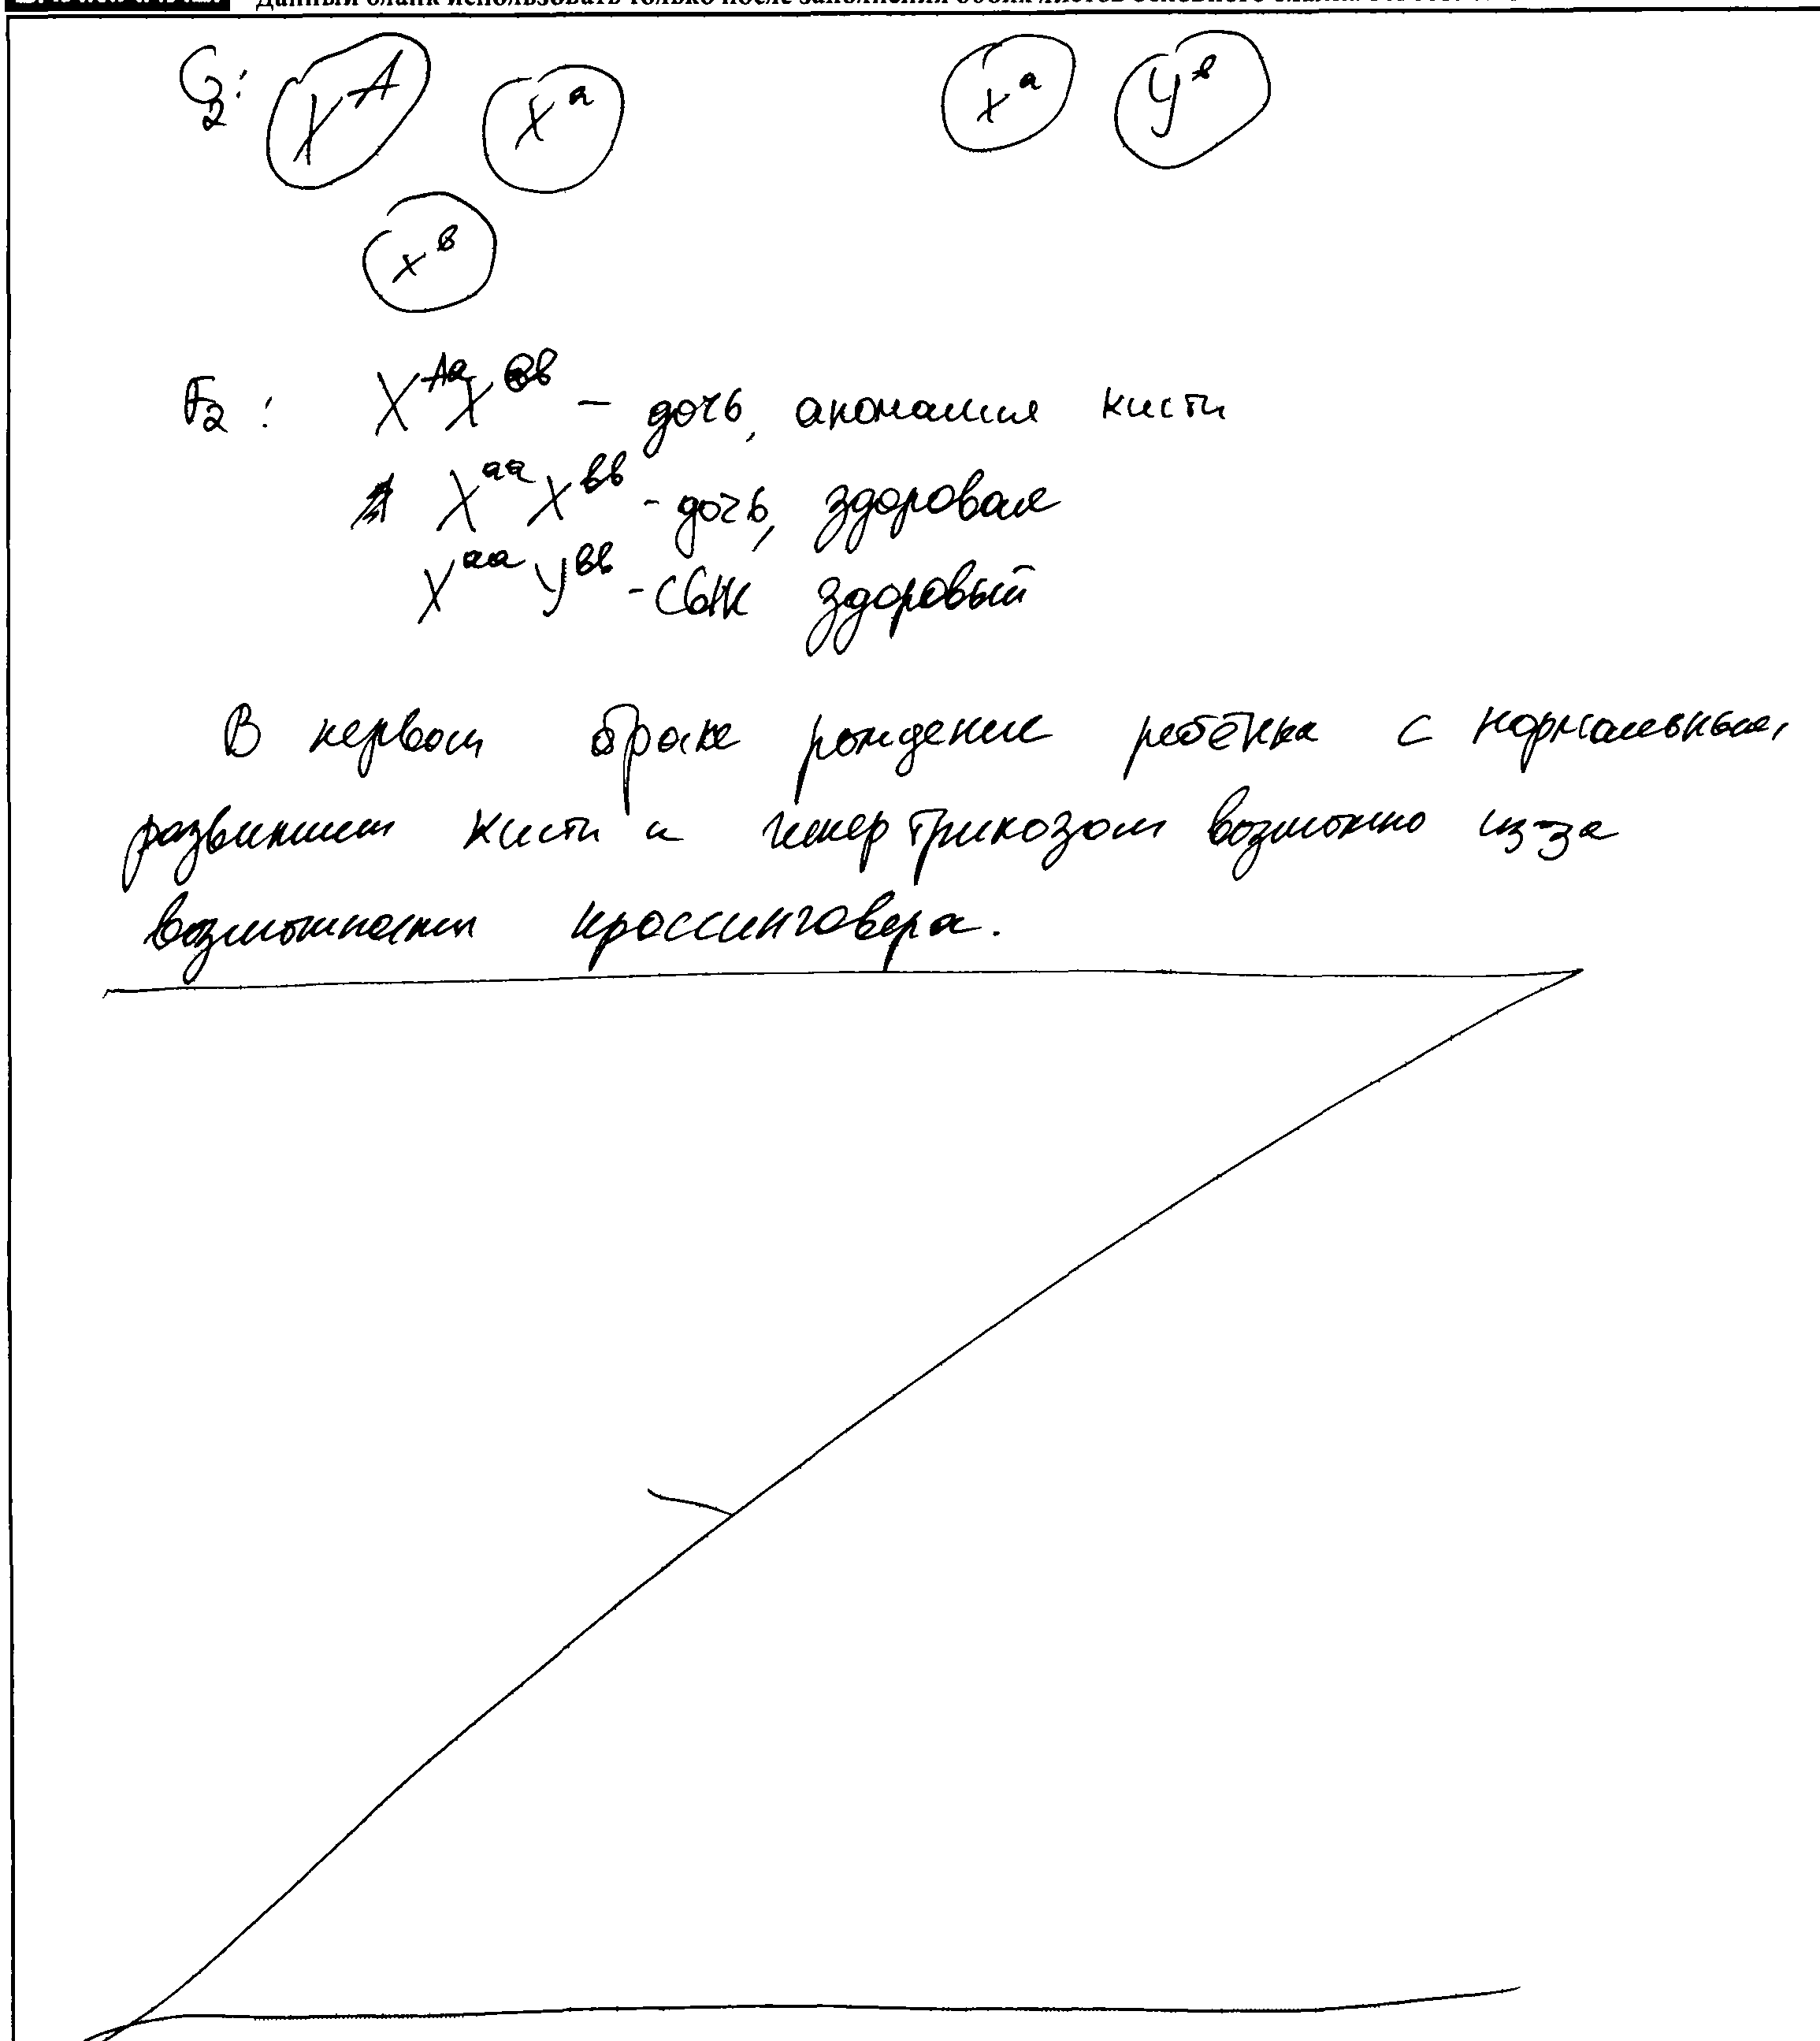 Данный бланк использовать только после заполнения обоих листов основного бланка
G₂: X^A X^a x^a У^в
x^в
F₂ : X^Aa X^вв – дочь, аномалия кисти
X^aa X^вв - дочь, здоровая
X^aa У^вв - сын здоровый
В первом браке рождение ребёнка с нормальным,
развитием кисти и гипертрихозом возможно из-за
возможности кроссинговера.